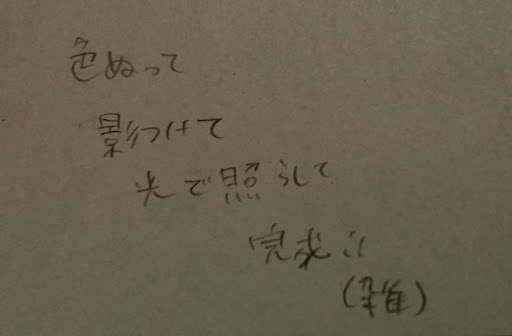 色ぬって
影つけて
光で照らして
完成!!
(雑)